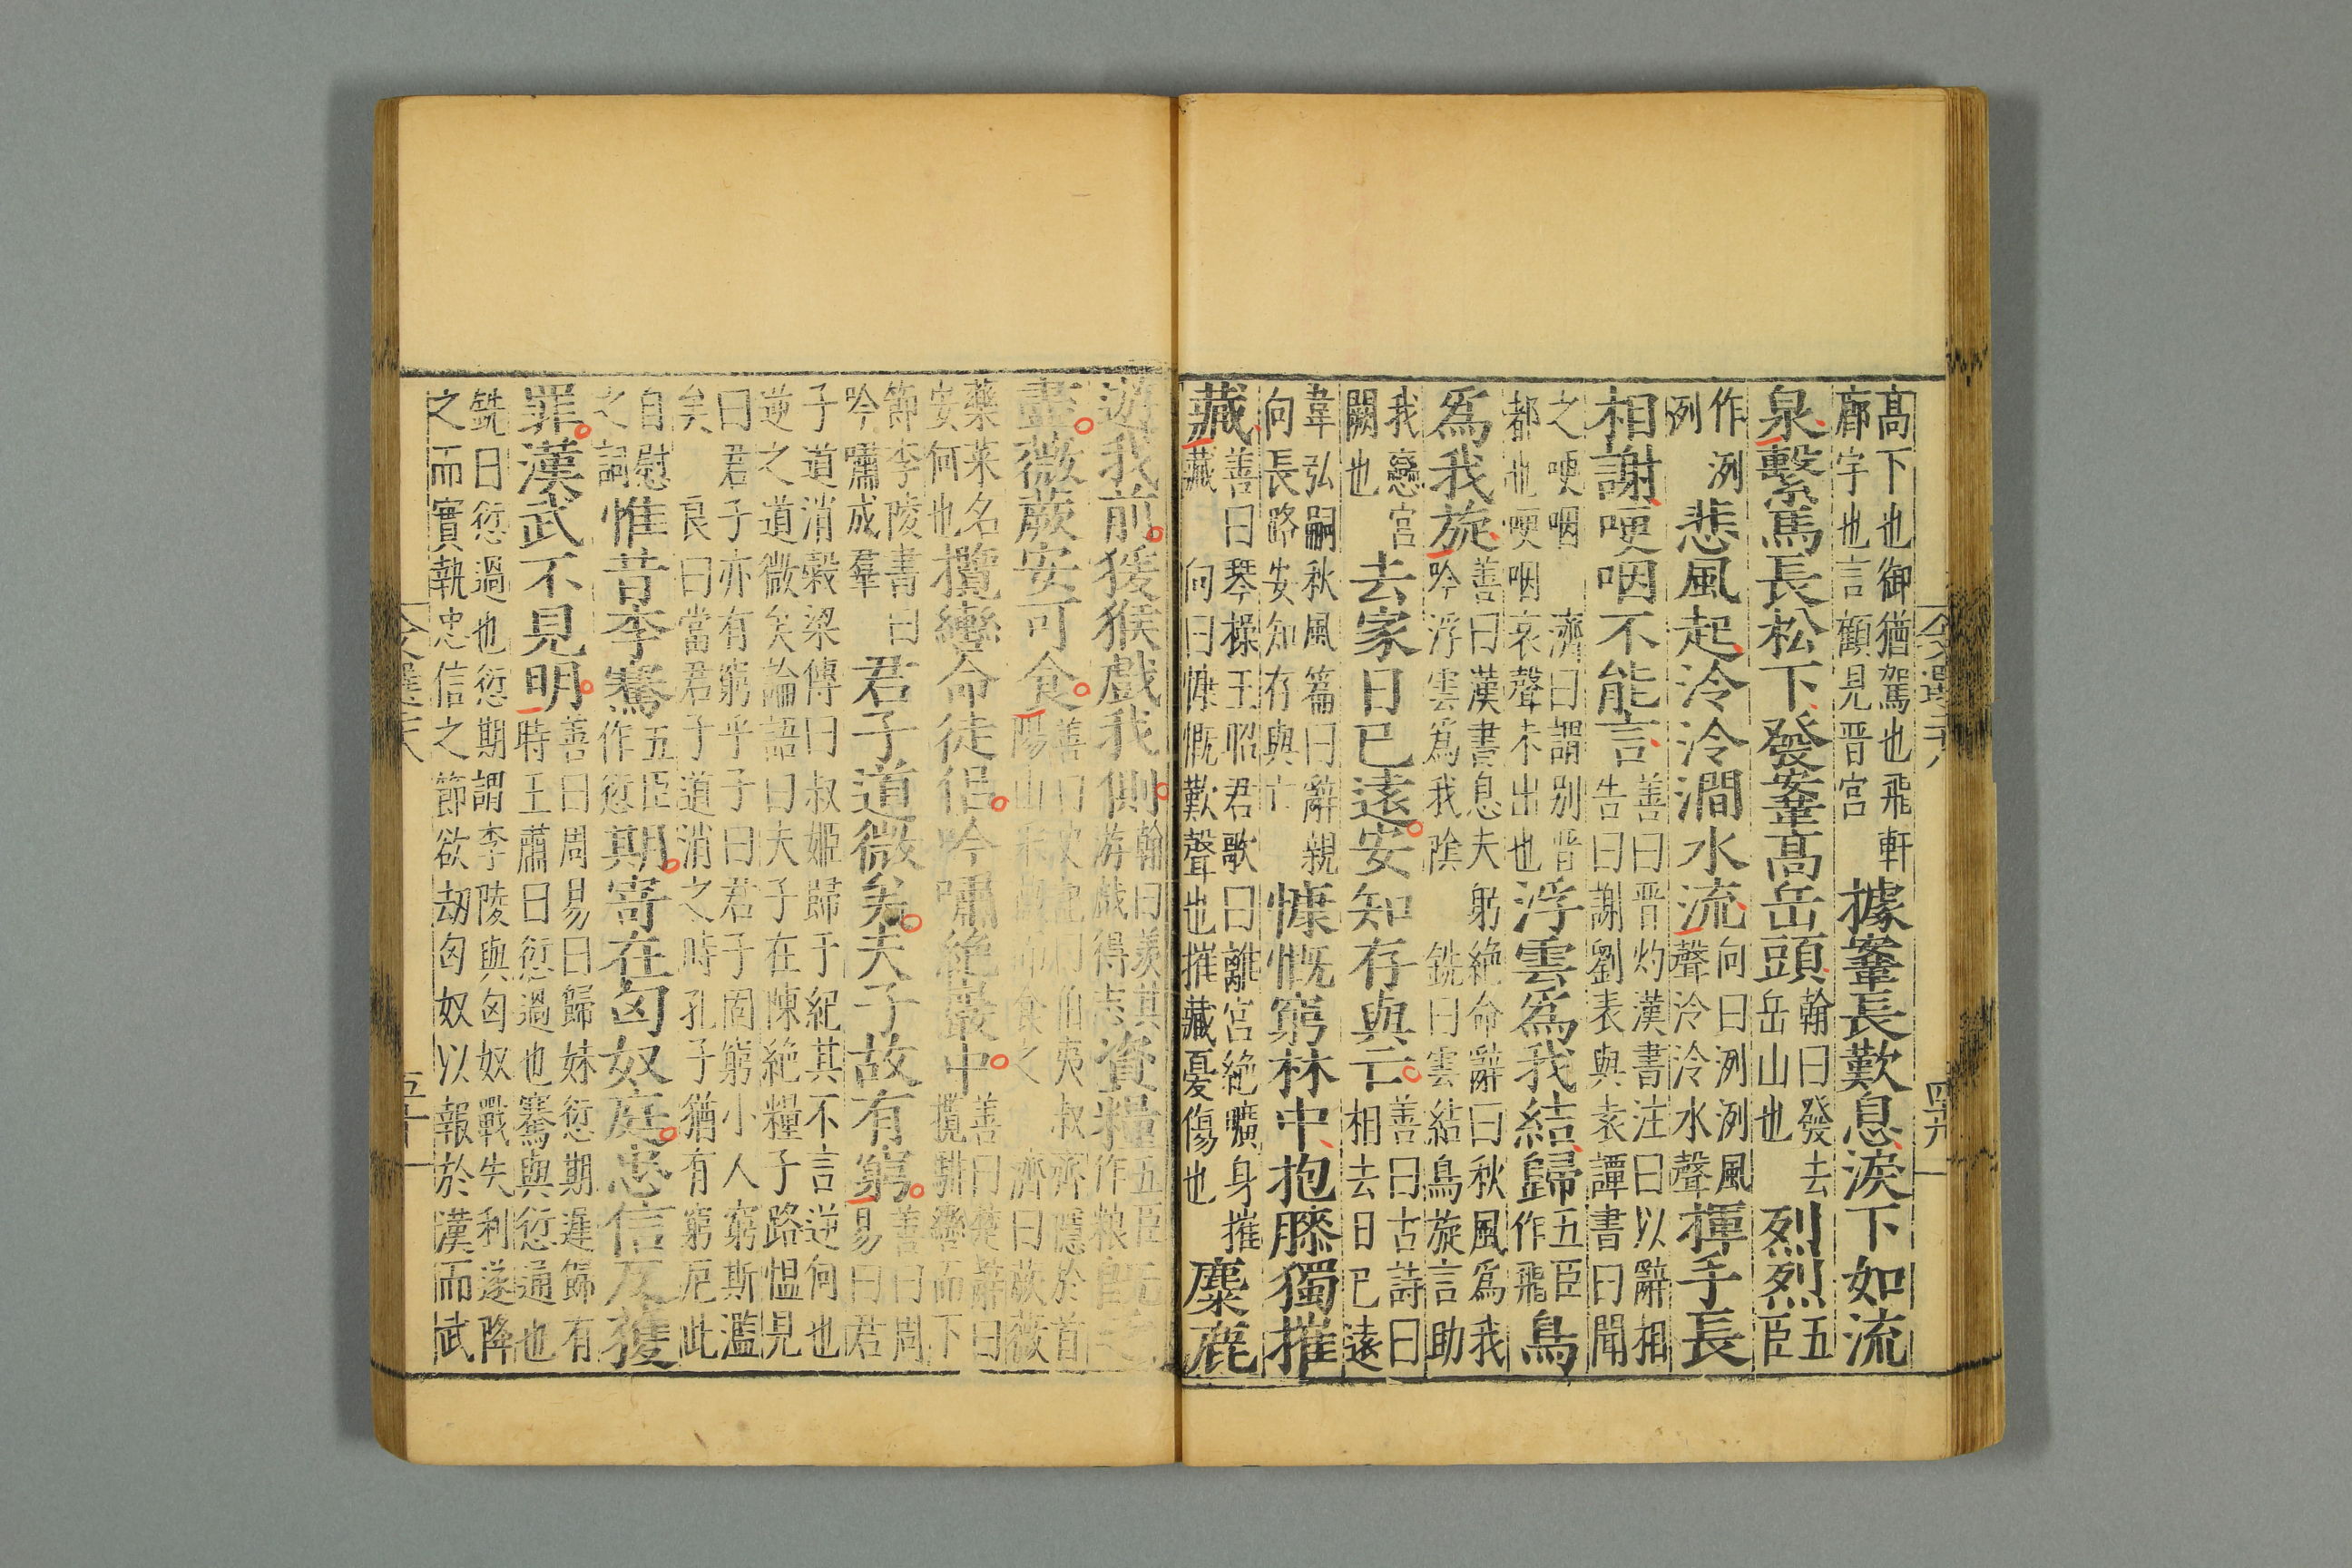 高下也御猶駕也飛軒
廊宇也言顧見晋宮
據鞌長歎息淚下如流
泉繫馬長松下發鞌高岳頭
翰曰發去
岳山也
烈烈
五臣
作洌
洌
悲風起泠泠澗水流
向曰洌洌風
聲泠泠水聲
揮手長
相謝哽咽不能言
善曰晋灼漢書注曰以辭相
告曰謝劉表與袁譚書曰聞
之哽咽
濟曰謂別晋
都也哽咽哀聲未出也
浮雲爲我結歸
五臣
作飛
鳥
爲我旋
善曰漢書息夫躬絶命辭曰秋風爲我
吟浮雲爲我陰
銑曰雲結鳥旋言助
我戀宮
闕也
去家日已遠安知存與亡
善曰古詩曰
相去日已遠
韋弘嗣秋風篇曰辭親
向長路安知存與亡
慷慨窮林中抱膝獨摧
藏
善曰琴操王昭君歌曰離宮絶曠身摧
藏
向曰慷慨歎聲也摧藏憂傷也
麋鹿
遊我前猨猴戲我側
翰曰羡其
游戲得志
資糧
五臣
作粮
盡薇蕨安可食
伯夷叔齊隱於首
陽山
濟曰蕨薇
藥菜名
安何也
攬轡命徒侣吟嘯絶巖中
善曰楚辭曰
攬騑轡而下
節李陵書曰
吟嘯成羣
君子道微矣夫子故有窮
善曰周
易曰君
子道消穀梁傳曰叔姬歸于紀其不言逆何也
逆之道微矣論語曰夫子在陳絶糧子路慍見
曰君子亦有窮乎子曰君子固窮小人窮斯濫
矣
良曰當君子道消之時孔子猶有窮厄此
自慰
之詞
惟昔李騫
五臣
作愆
期寄在匈奴庭忠信反獲
罪漢武不見明
善曰周易曰歸妹愆期遲歸有
時王肅曰愆過也騫與愆通也
銑曰愆過也愆期謂李陵與匈奴戰失利遂降
之而實執忠信之節欲劫匈奴以報於漢而武